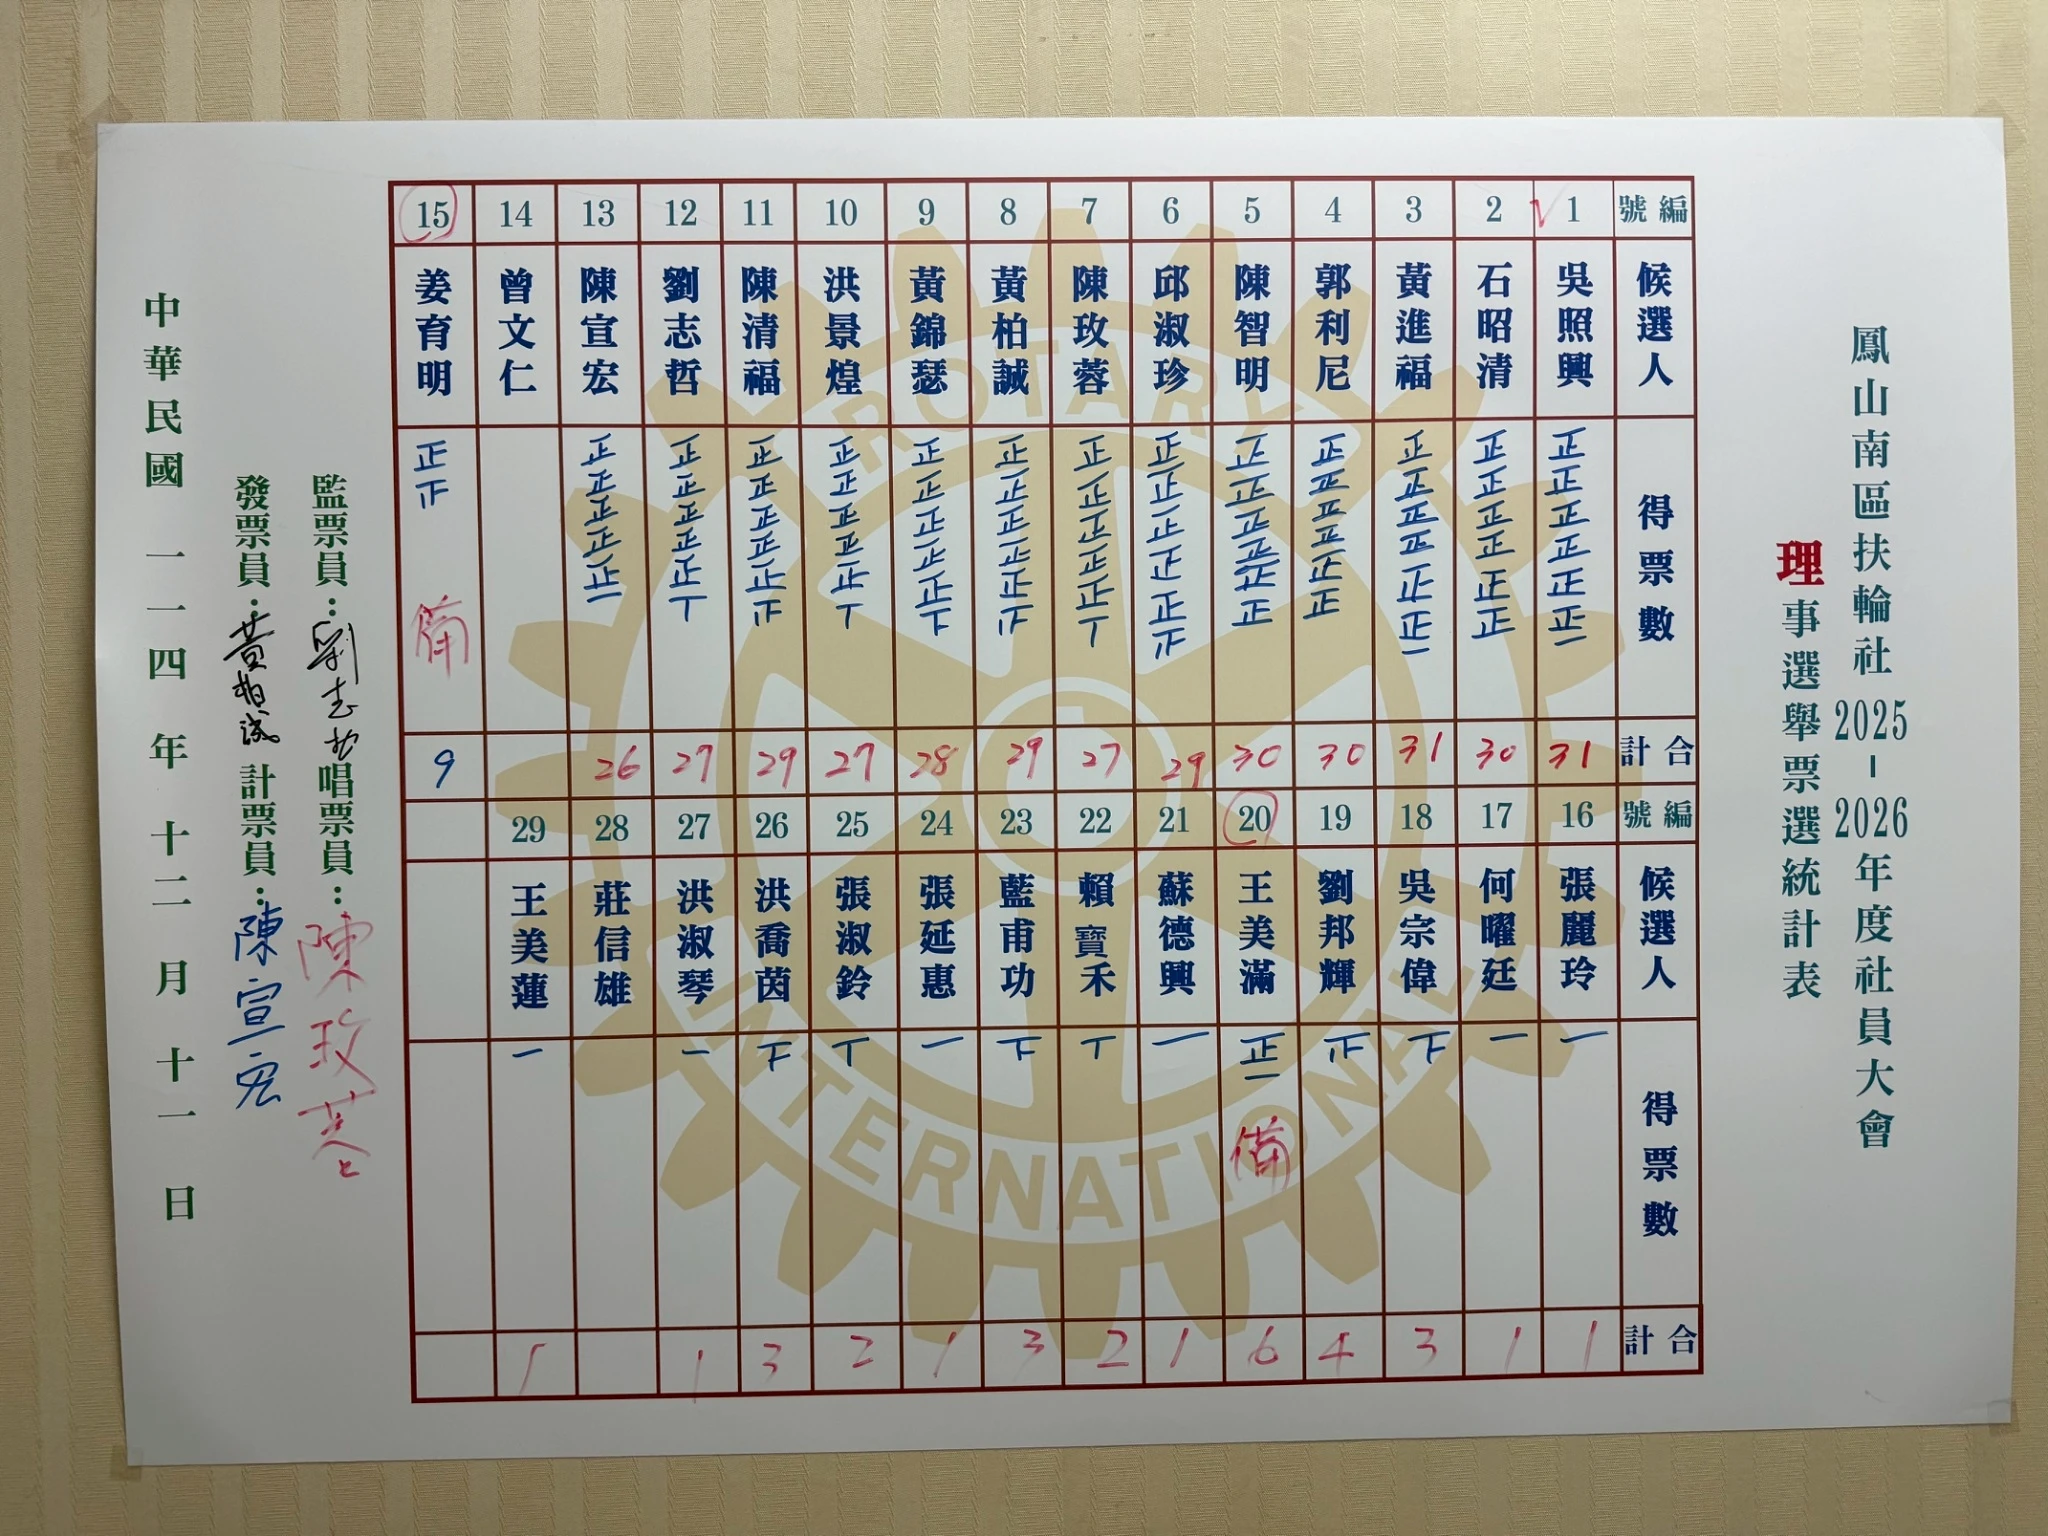 鳳山南區扶輪社 2025-2026年度社員大會
理事選舉票選統計表
編號 1 2 3 4 5 6 7 8 9 10 11 12 13 14 15
候選人 吳照興 石昭清 黃進福 郭利尼 陳智明 邱淑珍 陳玫蓉 黃柏誠 黃錦瑟 洪景煌 陳清福 劉志哲 陳宣宏 曾文仁 姜育明
得票數
正正正正正正一
正正正正正正
正正正正正正一
正正正正正正
正正正正正正
備
合計 31 30 31 30 30 29 27 29 28 27 29 27 26 9
編號 16 17 18 19 20 21 22 23 24 25 26 27 28 29
候選人 張麗玲 何曜廷 吳宗偉 劉邦輝 王美滿 蘇德興 賴寶禾 藍甫功 張延惠 張淑鈴 洪喬茵 洪淑琴 莊信雄 王美蓮
得票數
一 一 下 正一 一 丅 下 一 丅 下 一 一
備
合計 1 1 3 4 6 1 2 3 1 2 3 1 1
監票員：劉志哲 唱票員：陳玫蓉
發票員：黃柏誠 計票員：陳宣宏
中華民國 一一四 年 十二 月 十一 日
ROTARY
INTERNATIONAL